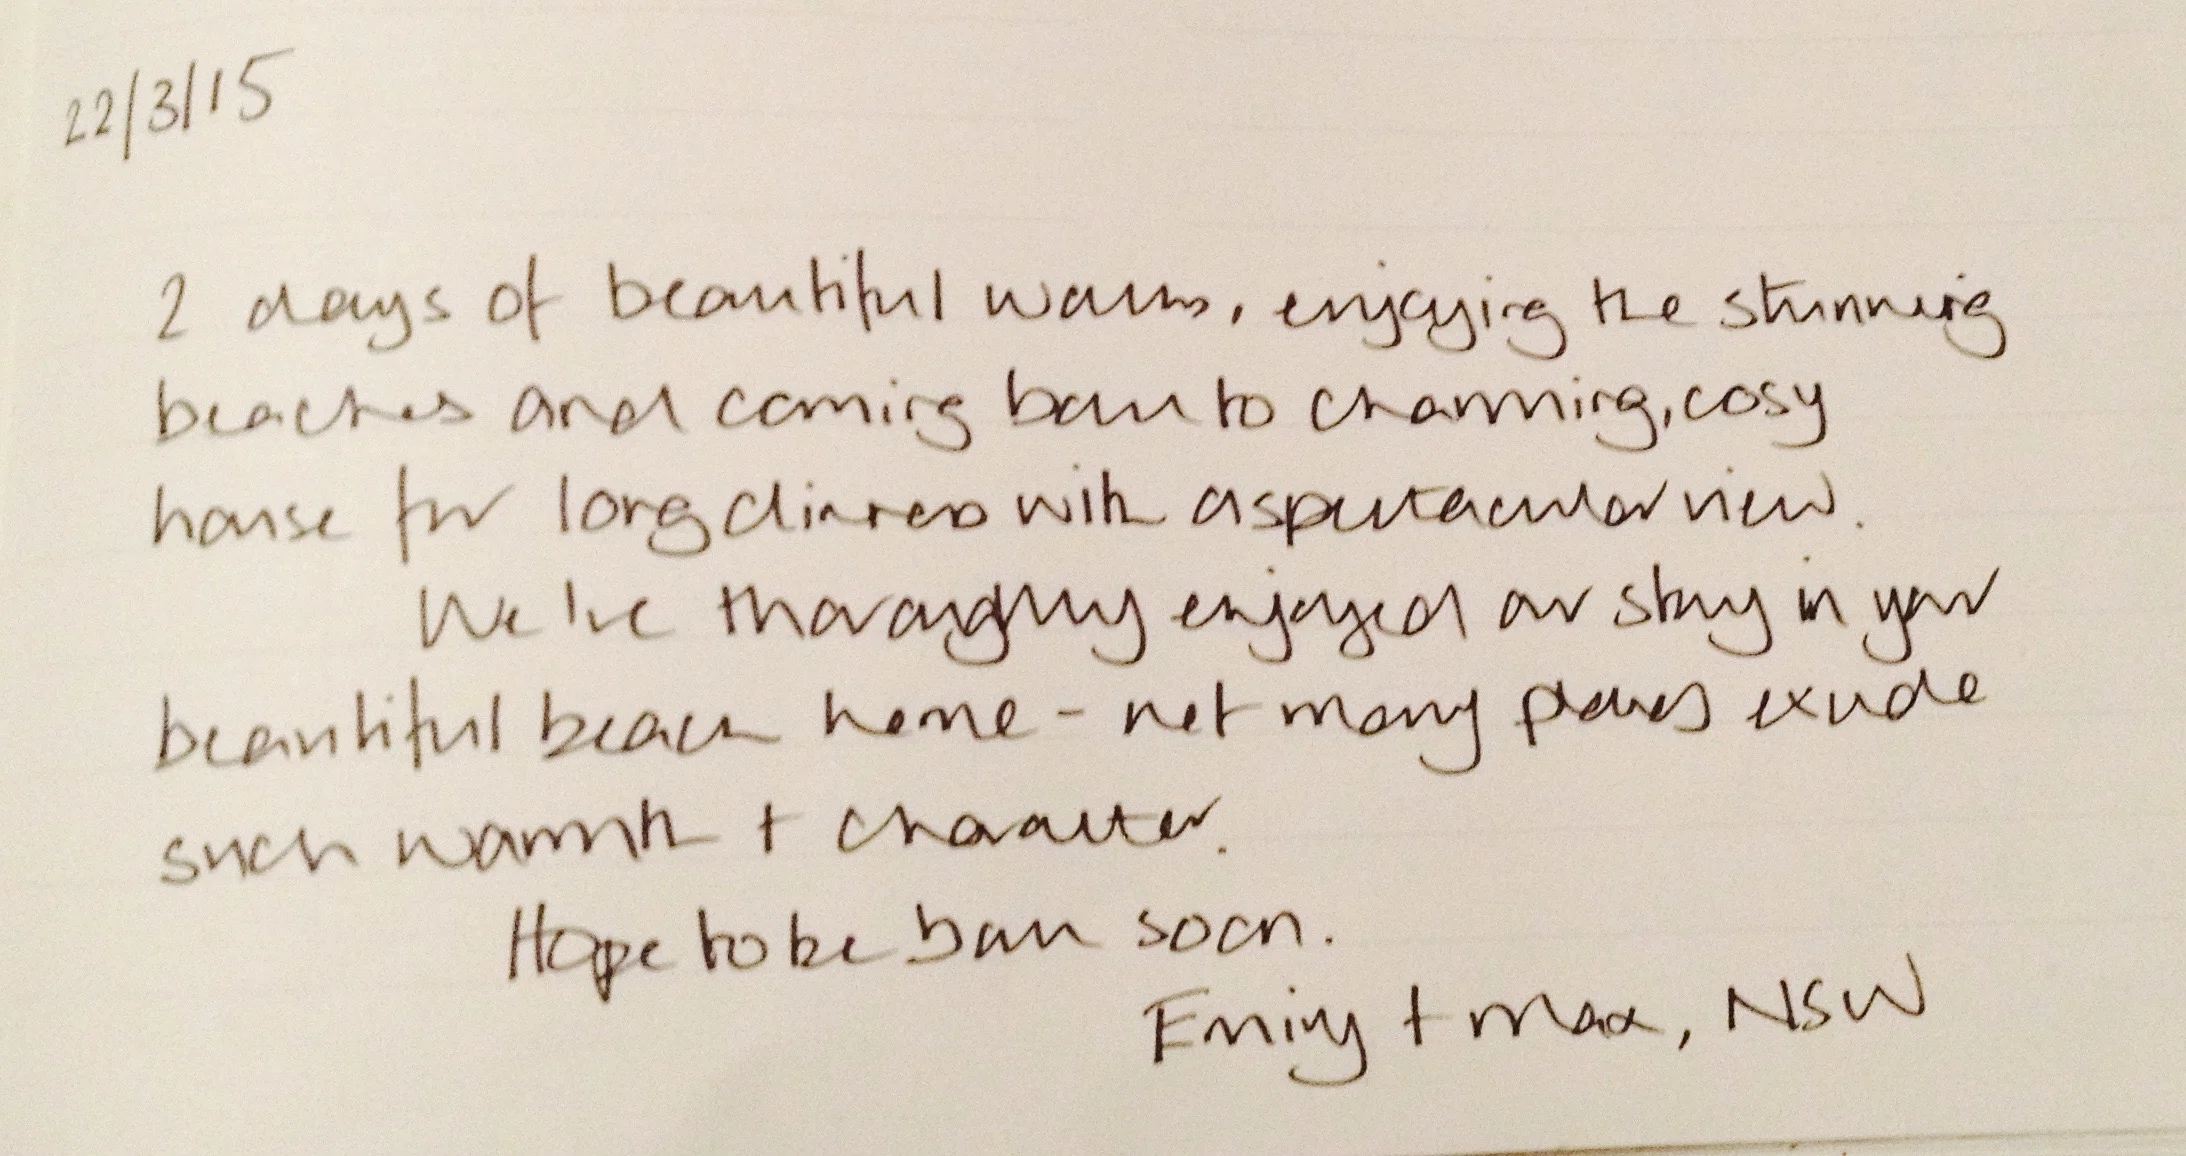 22/3/15
2 days of beautiful walks, enjoying the stunning
beaches and coming back to charming, cosy
house for long dinners with a spectacular view.
We've thoroughly enjoyed our stay in your
beautiful beach home - not many places exude
such warmth + character.
Hope to be back soon.
Emily + Max, NSW